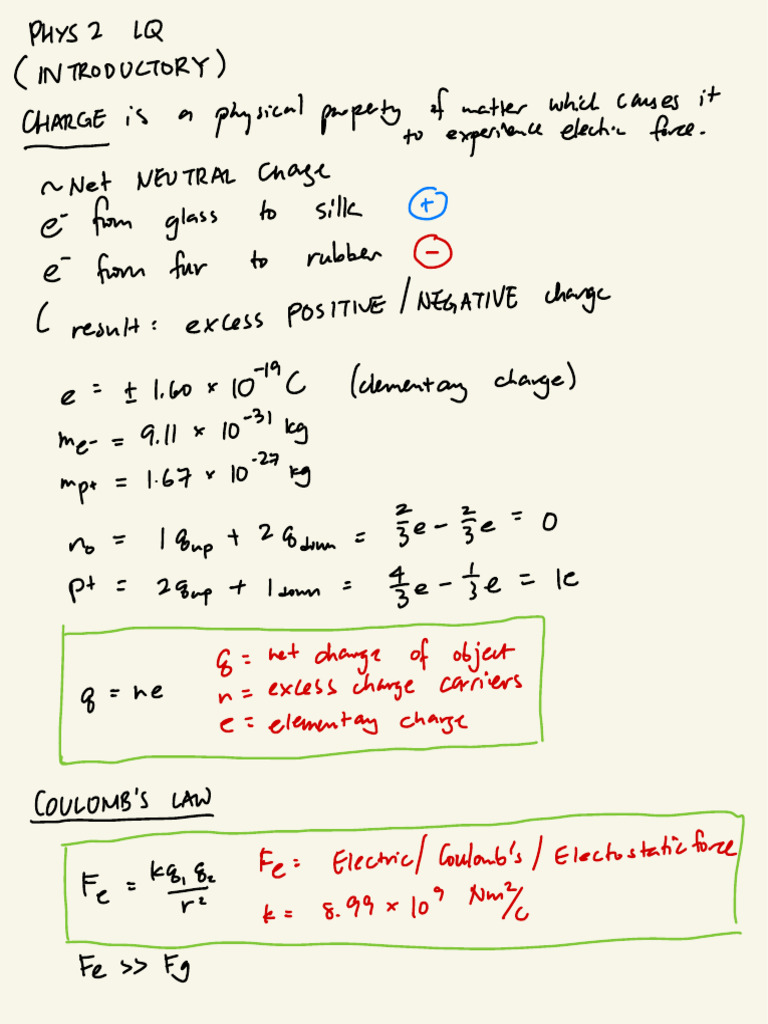 PHYS 2 LQ
(INTRODUCTORY)
CHARGE is a physical property of matter which causes it
to experience electric force.
~Net NEUTRAL Charge
e⁻ from glass to silk +
e⁻ from fur to rubber −
( result: excess POSITIVE / NEGATIVE charge
e = ± 1.60 × 10⁻¹⁹ C (elementary charge)
mₑ₋ = 9.11 × 10⁻³¹ kg
mₚ₊ = 1.67 × 10⁻²⁷ kg
n₀ = 1q_up + 2q_down = 2/3 e − 2/3 e = 0
p⁺ = 2q_up + 1_down = 4/3 e − 1/3 e = 1e
q = net change of object
q = ne n = excess charge carriers
e = elementary charge
COULOMB'S LAW
Fₑ = kq₁q₂/r² Fₑ = Electric / Coulomb's / Electostatic force
k = 8.99 × 10⁹ Nm²/c
Fₑ >> Fg